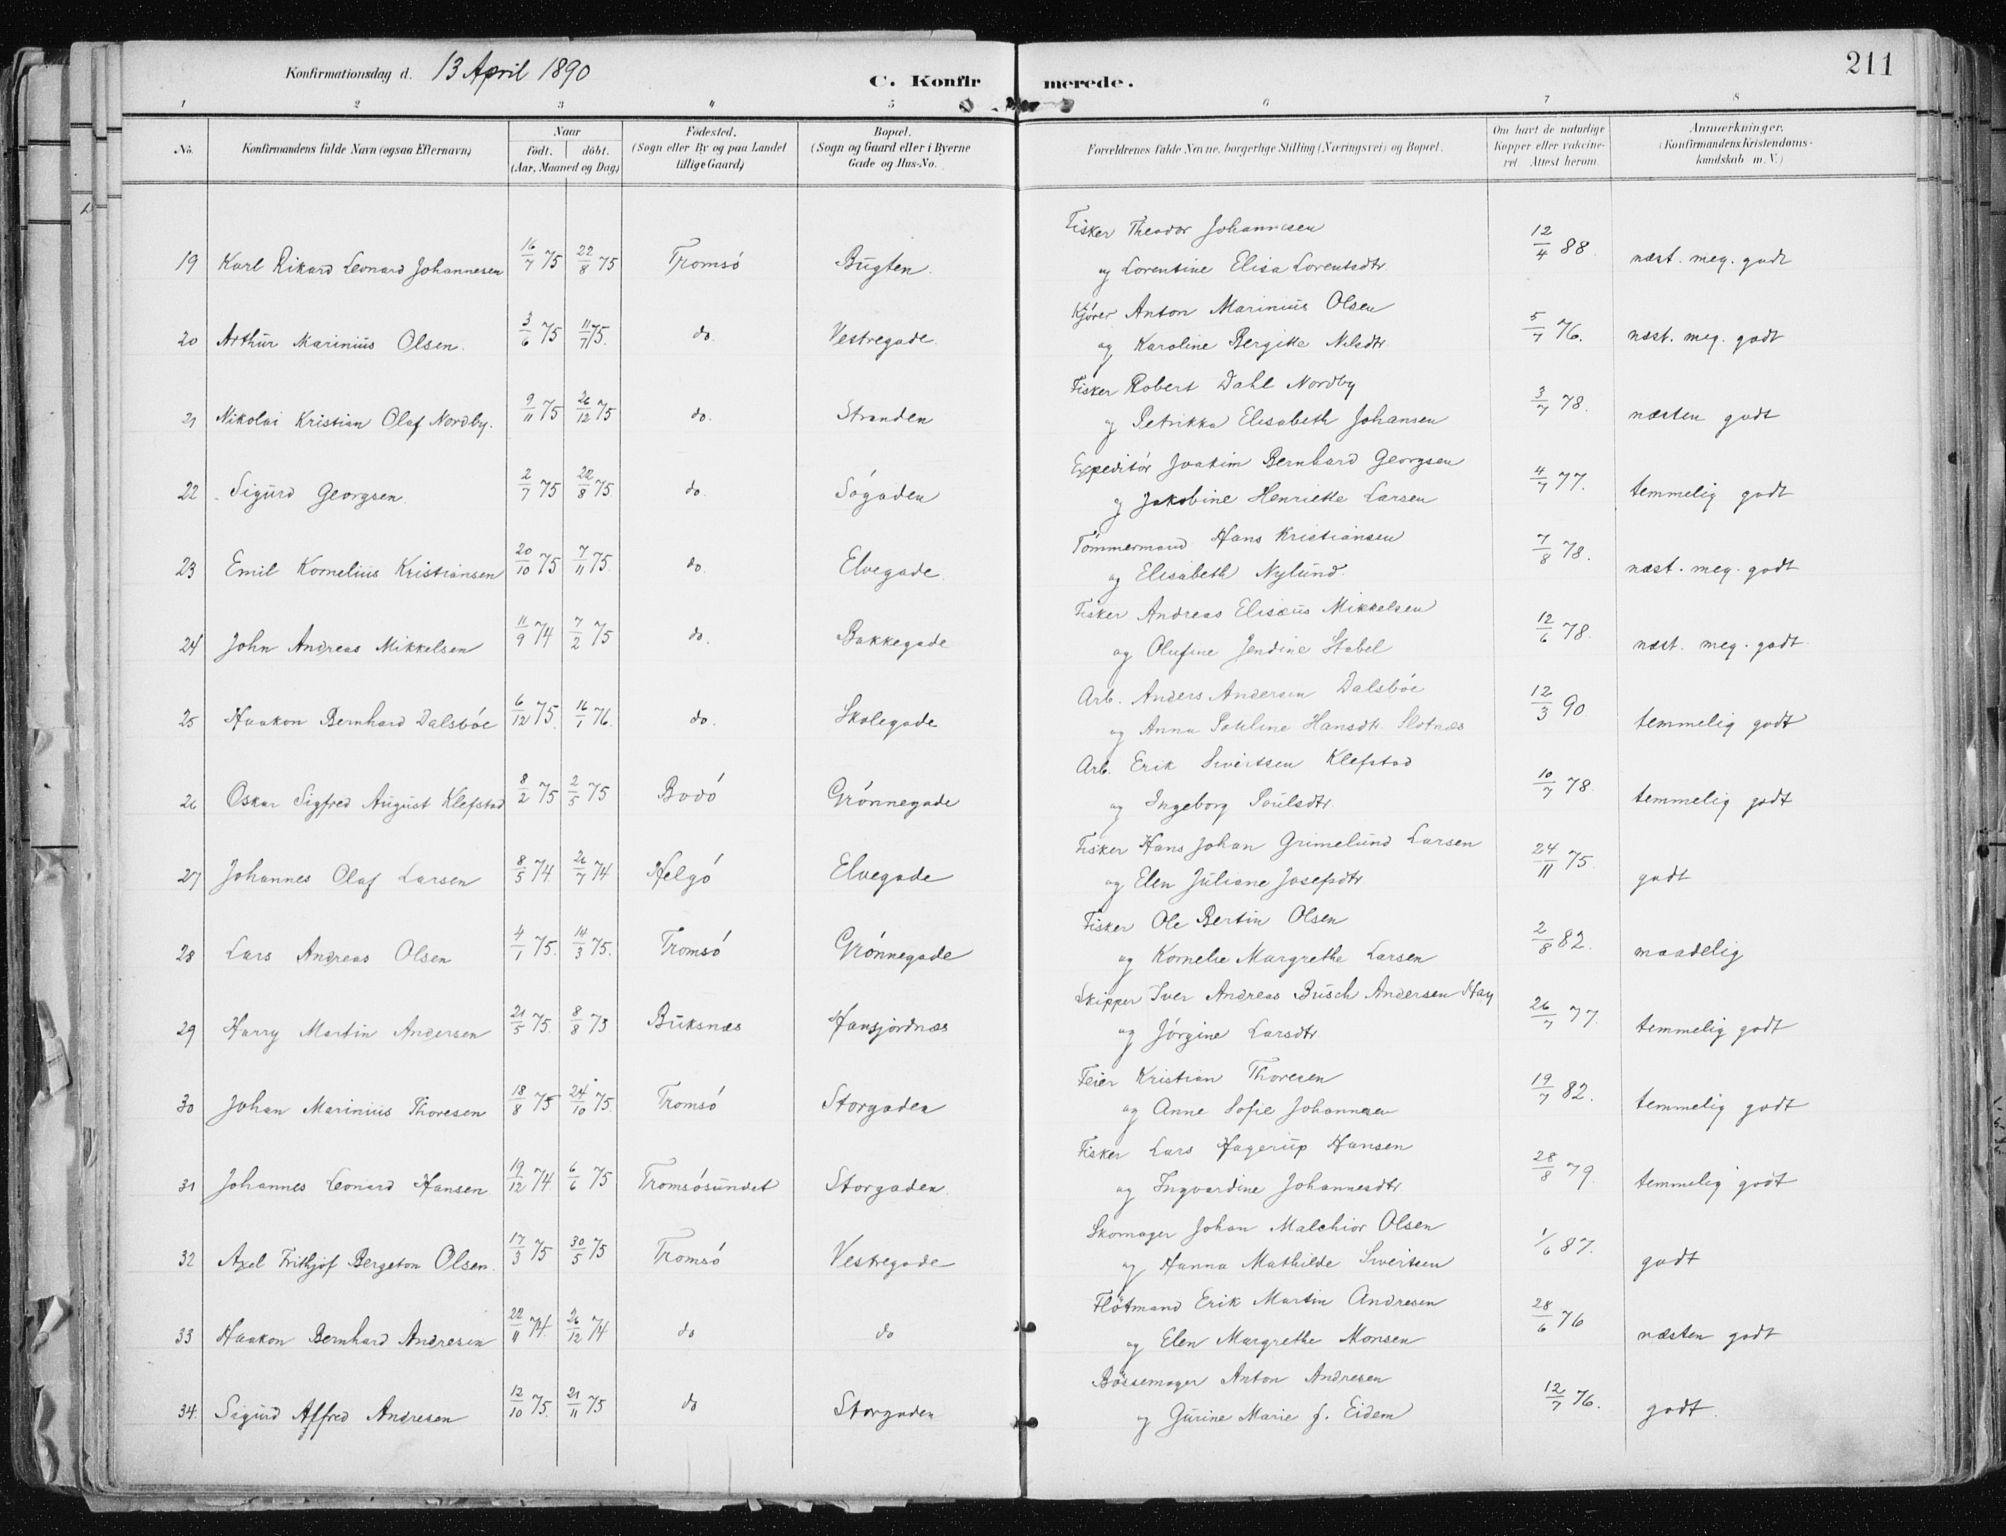 Konfirmationsdag d. 13 April 1890 C. Konfirmerede. 211
1 2 3 4 5 6 7 8
No. Konfirmandens fulde Navn (ogsaa Efternavn) Naar født. døbt. (Aar, Maaned og Dag) Fødested. (Sogn eller By og paa Landet tillige Gaard) Bopæl. (Sogn og Gaard eller i Byerne Gade og Hus-No. Forældrenes fulde Navne, borgerlige Stilling (Næringsvei) og Bopæl. Om havt de naturlige Kopper eller vakcineret. Attest herom. Anmærkninger. (Konfirmandens Kristendomskundskab m. V.)
Fisker Theodor Johannesen
19 Karl Rikard Leonard Johannesen 16/7 75 22/8 75 Tromsö Bugten. og Lorentine Elisa Lorentsdtr. 12/4 88 næst. meg. godt
Kjører Anton Marinius Olsen
20 Arthur Marinius Olsen. 3/6 75 11/7 75. do. Vestregade. og Karoline Bergitte Nilsdtr. 5/7 76. næst. meg. godt
Fisker Robert Dahl Nordby
21 Nikolai Kristian Olaf Nordby. 9/11 75 26/12 75 do. Stranden og Petrikka Elisabeth Johansen 3/7 78. næsten godt
Expeditör Joakim Bernhard Georgsen
22 Sigurd Georgsen. 2/7 75 22/8 75. do. Søgaden og Jakobine Henriette Larsen 4/7 77. temmelig godt
Tömmermand Hans Kristiansen
23 Emil Kornelius Kristiansen 20/10 75 7/11 75. do. Elvegade. og Elisabeth Nylund. 7/8 78. næst. meg. godt
Fisker Andreas Elisæus Mikkelsen
24 John Andreas Mikkelsen 11/9 74 7/2 75 do. Bakkegade og Olufine Jendine Stabel 12/6 78. næst. meg. godt
Arb. Anders Andersen Dalsböe
25 Haakon Bernhard Dalsböe 6/12 75. 16/1 76. do. Skolegade og Anna Pauline Hansdtr. Slotnæs 12/3 90 temmelig godt
Arb. Erik Sivertsen Klefstad
26 Oskar Sigfred August Klefstad 8/2 75 2/5 75 Bodö Grönnegade og Ingeborg Poulsdtr. 10/7 78. temmelig godt
Fisker Hans Johan Grimelund Larsen
27 Johannes Olaf Larsen 8/5 74 26/7 74 Helgö Elvegade og Elen Juliane Josefsdtr. 24/11 75. godt
Fisker Ole Bertin Olsen
28 Lars Andreas Olsen 4/1 75. 14/3 75. Tromsö Grönnegade og Kornelie Margrethe Larsen 2/8 82. maadelig
Skipper Iver Andreas Busch Andersen Hay
29 Harry Martin Andersen 21/5 75. 8/8 75 Buksnæs Hansjordnæs og Jörgine Larsdtr. 26/7 77. temmelig godt
Feier Kristian Thoresen
30 Johan Marinius Thoresen 18/8 75 24/10 75. Tromsö Storgaden og Anne Sofie Johannesen 19/7 82. temmelig godt
Fisker Lars Hagerup Hansen
31 Johannes Leonard Hansen 19/12 74 6/6 75 Tromsösundet Storgaden. og Ingvardine Johannesdtr. 28/8 79. temmelig godt
Skomager Johan Malchior Olsen
32 Axel Frithjof Bergeton Olsen. 17/3 75 30/5 75 Tromsö Vestregade og Hanna Mathilde Sivertsen 1/6 87. godt
Flötmand Erik Martin Andresen
33 Haakon Bernhard Andresen 22/11 74. 26/12 74 do do og Elen Margrethe Monsen 28/6 76 næsten godt
Bössemager Anton Andresen
34. Sigurd Alfred Andresen 12/10 75. 21/11 75 do Storgaden og Gurine Marie f. Eidem 12/7 76. godt.